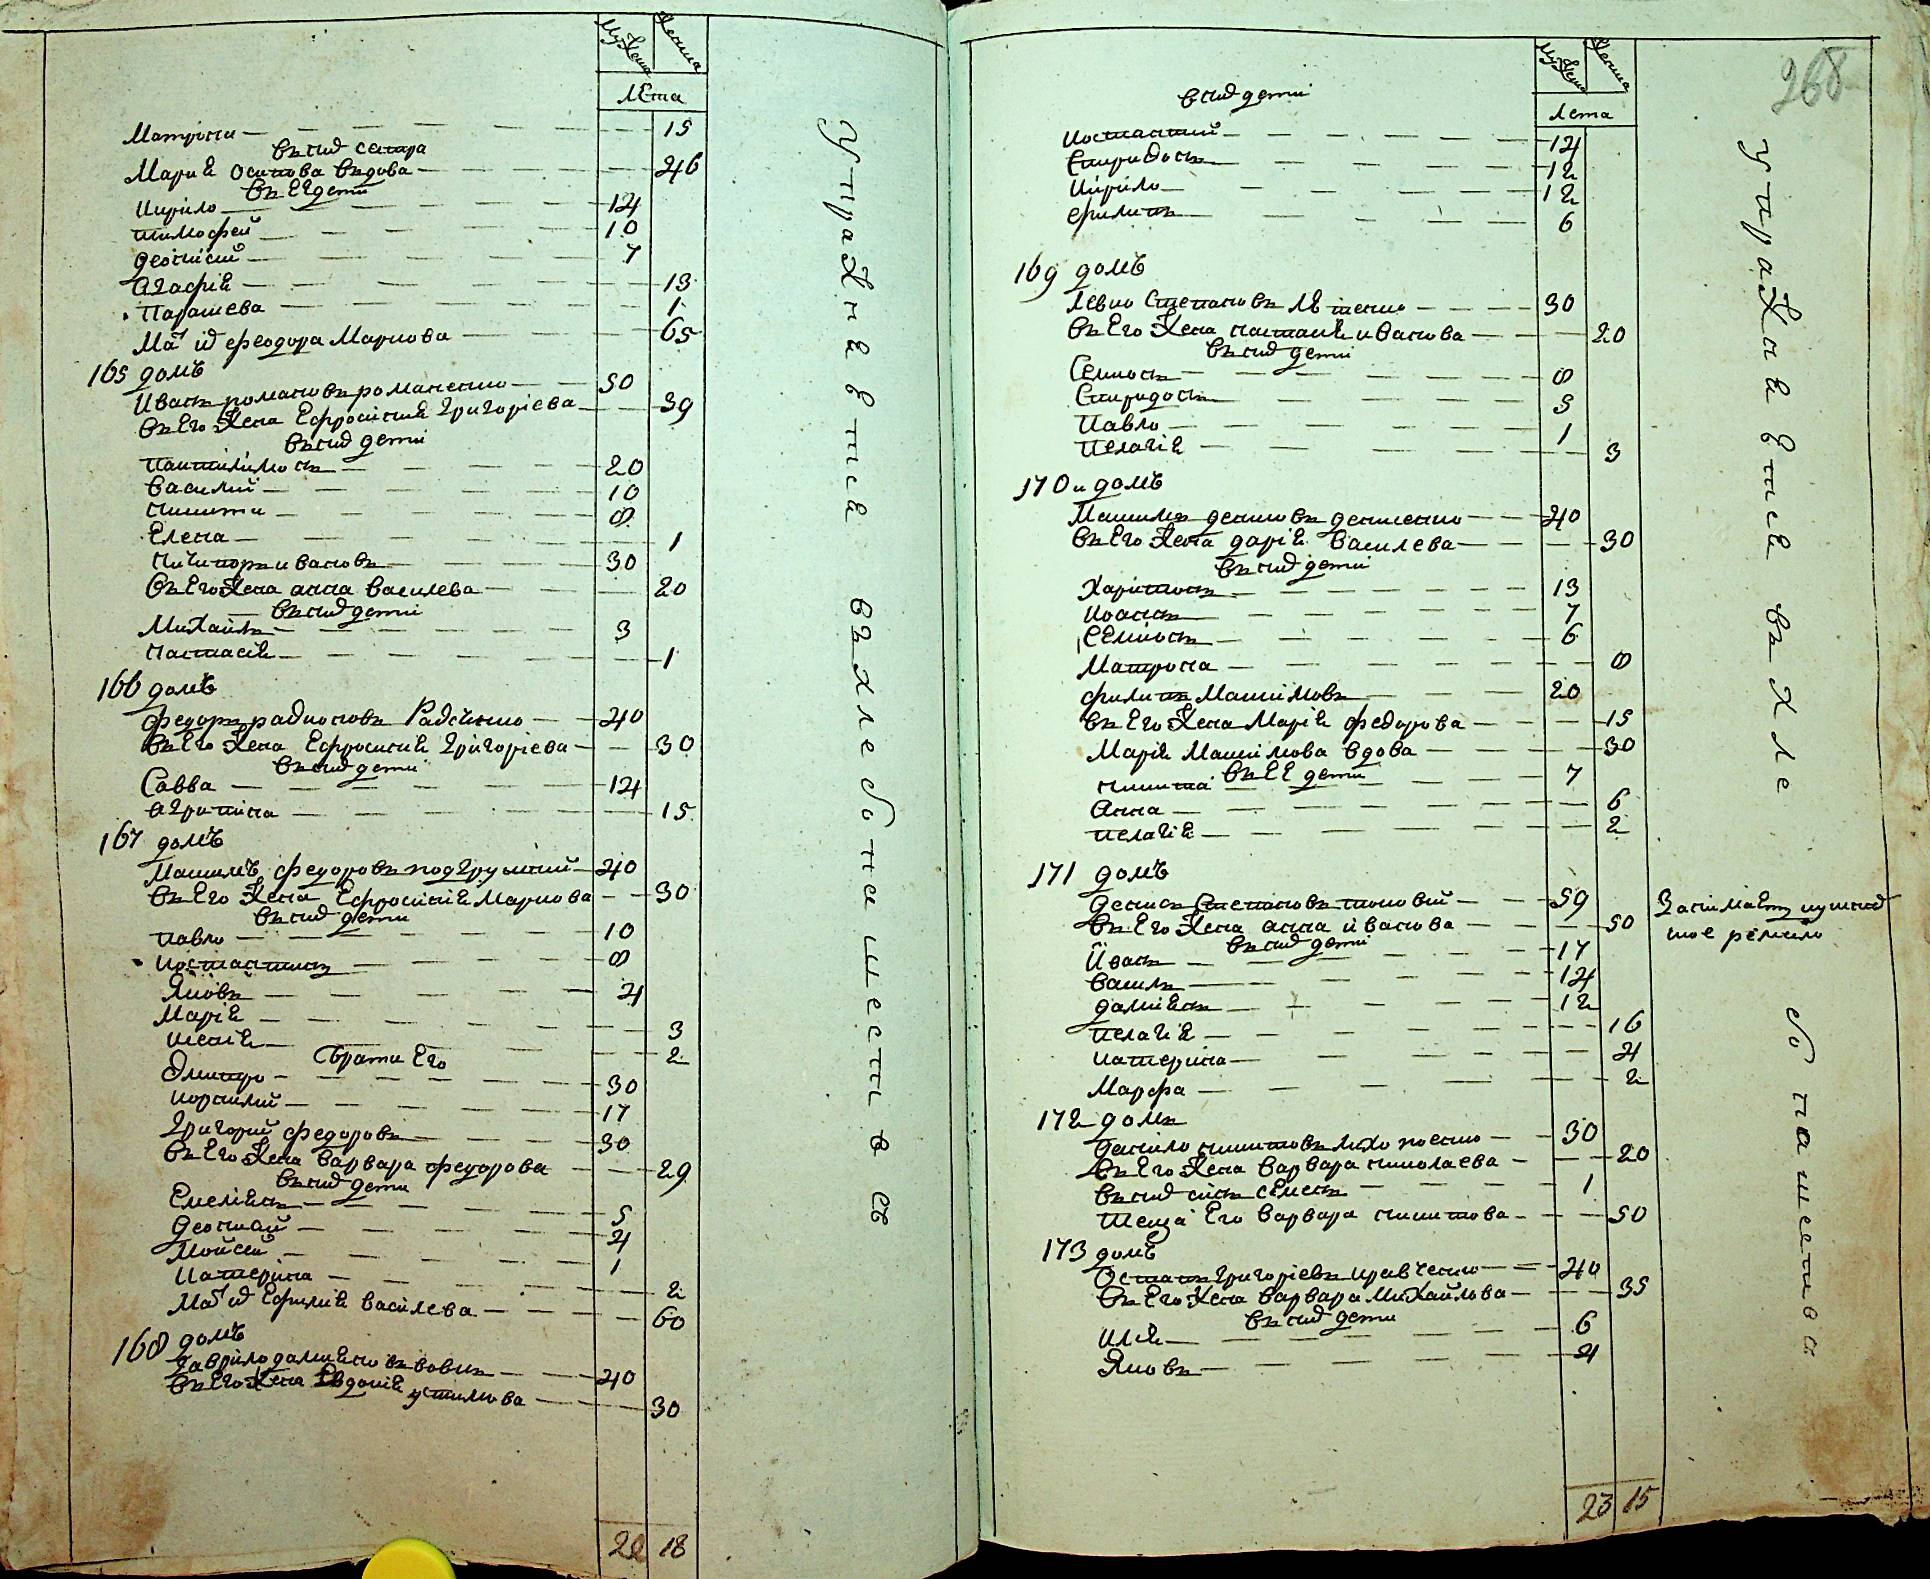 МуЖеска Женска
Лѣта
Матрона 15
въ них сестра
Мария Осипова Вдова 46
въ ЕЕ дети
Кирило 14
тимофей 10
деонисий 7
Агафия 13
Парасева 1
Мать их феодора Маркова 65
165 домъ
Иванъ романовъ романенко 50
въ Его Жена Ефросиния григориева 39
въ них дети
Пантилимонъ 20
василий 10
никита 8
Елена 1
ничипоръ ивановъ 30
въ Его Жена анна василева 20
въ них дети
Михаилъ 3
настасия 1
166 домъ
федоръ радионовъ Радченко 40
въ Его Жена Ефросиния григориева 30
въ них дети
Савва 14
агрипина 15
167 домъ
Максимъ федоровъ подгрушний 40
въ Его Жена Ефросиния Маркова 30
въ них дети
павло 10
Костантинъ 8
Яковъ 4
Мария 3
ксения 2
братя Его
Дмитро 30
корнилий 17
григорий федоровъ 30
въ Его Жена варвара федорова 29
въ них дети
Емелиянъ 5
деонисий 4
Мойсей 1
катерина 2
Мать их Ефимия василева 60
168 домъ
гаврило дамияновъ вовкъ 40
въ Его Жена Евдокия устимова 30
22 18
УпраЖняются въ хлебопашестве
268
МуЖеска Женска
Лета
в них дети
костантий 14
спиридонъ 12
кирило 12
филипъ 6
169 домъ
Левко степановъ 30
въ Его Жена наталия иванова 20
въ них дети
Семионъ 8
Спиридонъ 5
Павло 1
пелагия 3
170й домъ
Максимъ денисовъ денисенко 40
въ Его Жена дария василева 30
въ них дети
Харитонъ 13
иоанъ 7
семионъ 6
Матрона 8
филипъ Максимовъ 20
въ Его Жена Мария федорова 15
Мария Максимова вдова 30
въ ЕЕ дети
никита 7
Анна 6
пелагия 2
171 домъ
денисъ степановъ 59
въ Его Жена анна иванова 50
въ них дети
Иванъ 17
василь 14
дамиянъ 12
пелагия 16
катерина 4
Марфа 2
172 домъ
данило никитовъ 30
въ Его Жена варвара николаева 20
въ них синъ семенъ 1
теща Его варвара никитова 50
173 домъ
Остапъ григориевъ кравченко 40
въ Его Жена варвара Михайлова 35
въ них дети
илия 6
Яковъ 4
23 15